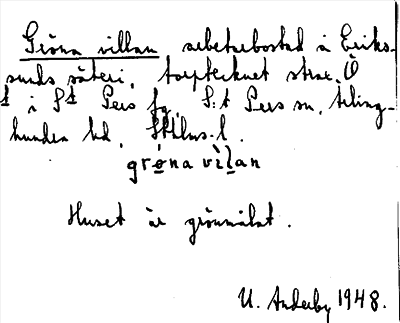 Gröna villan arbetarbostad å Eriks-
sunds säteri, torptecknet strax Ö
i S:t Pers fg, S:t Pers sn, Erling-
hundra hd, Sthlms l.
gröna vìlan
Huset är grönmålat.
U. Anderby 1948.